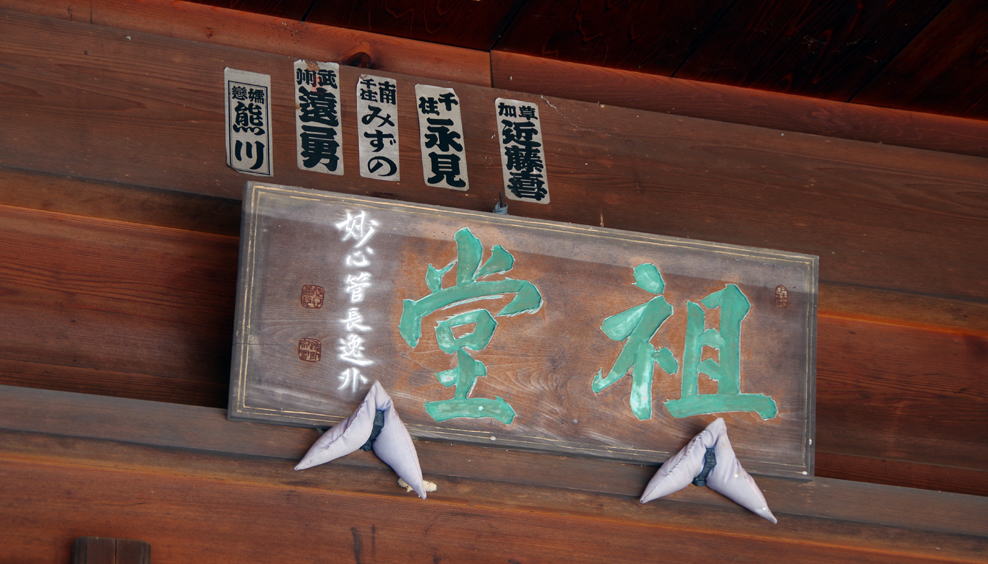 祖堂
妙心管長逸外
草加
近藤喜
千住
永見
南千住
みずの
武州
遠勇
熊川